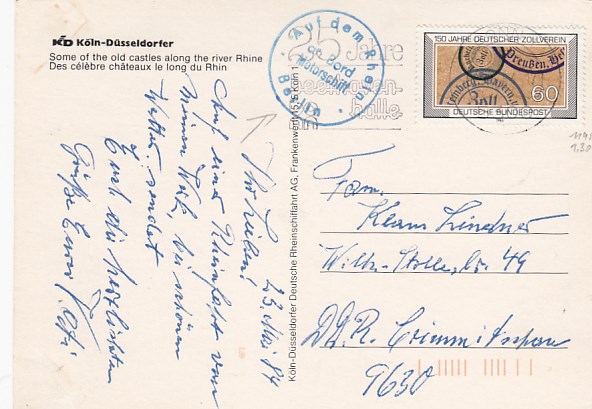 KD Köln-Düsseldorfer
Some of the old castles along the river Rhine
Des célèbre châteaux le long du Rhin
Auf dem Rhein
an Bord
Motorschiff
Berlin
25 Jahre
Beethoven-
halle
150 JAHRE DEUTSCHER ZOLLVEREIN
Preußen.
Zoll
60
DEUTSCHE BUNDESPOST
23. Mai 84
Ihr Lieben!
Auf einer Rheinfahrt von
bei schönem
Wetter sendet
Euch die herzlichsten
Grüße Euer
Köln-Düsseldorfer Deutsche Rheinschiffahrt AG, Frankenwerft 15, 5 Köln 1
Fam.
Klaus Lindner
Wilh.-Stolle-Str. 49
DDR Crimmitschau
9630